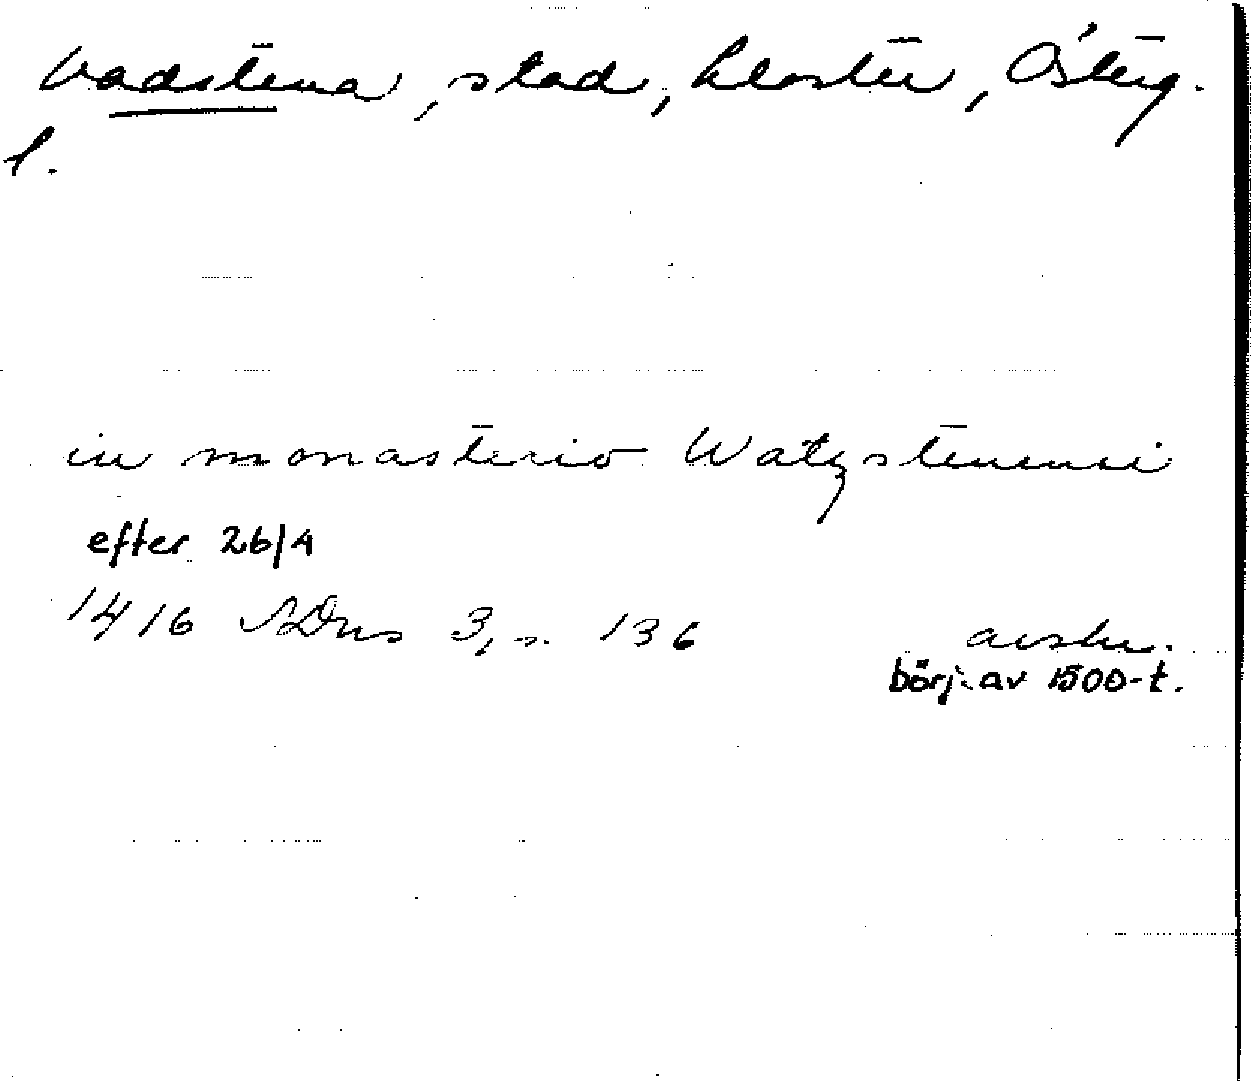 Vadstena, stad, kloster, Österg.
l.
in monasterio Watzstenensi
efter 26/4
1416 SDns 3, s. 136 avskr.
börj. av 1500-t.